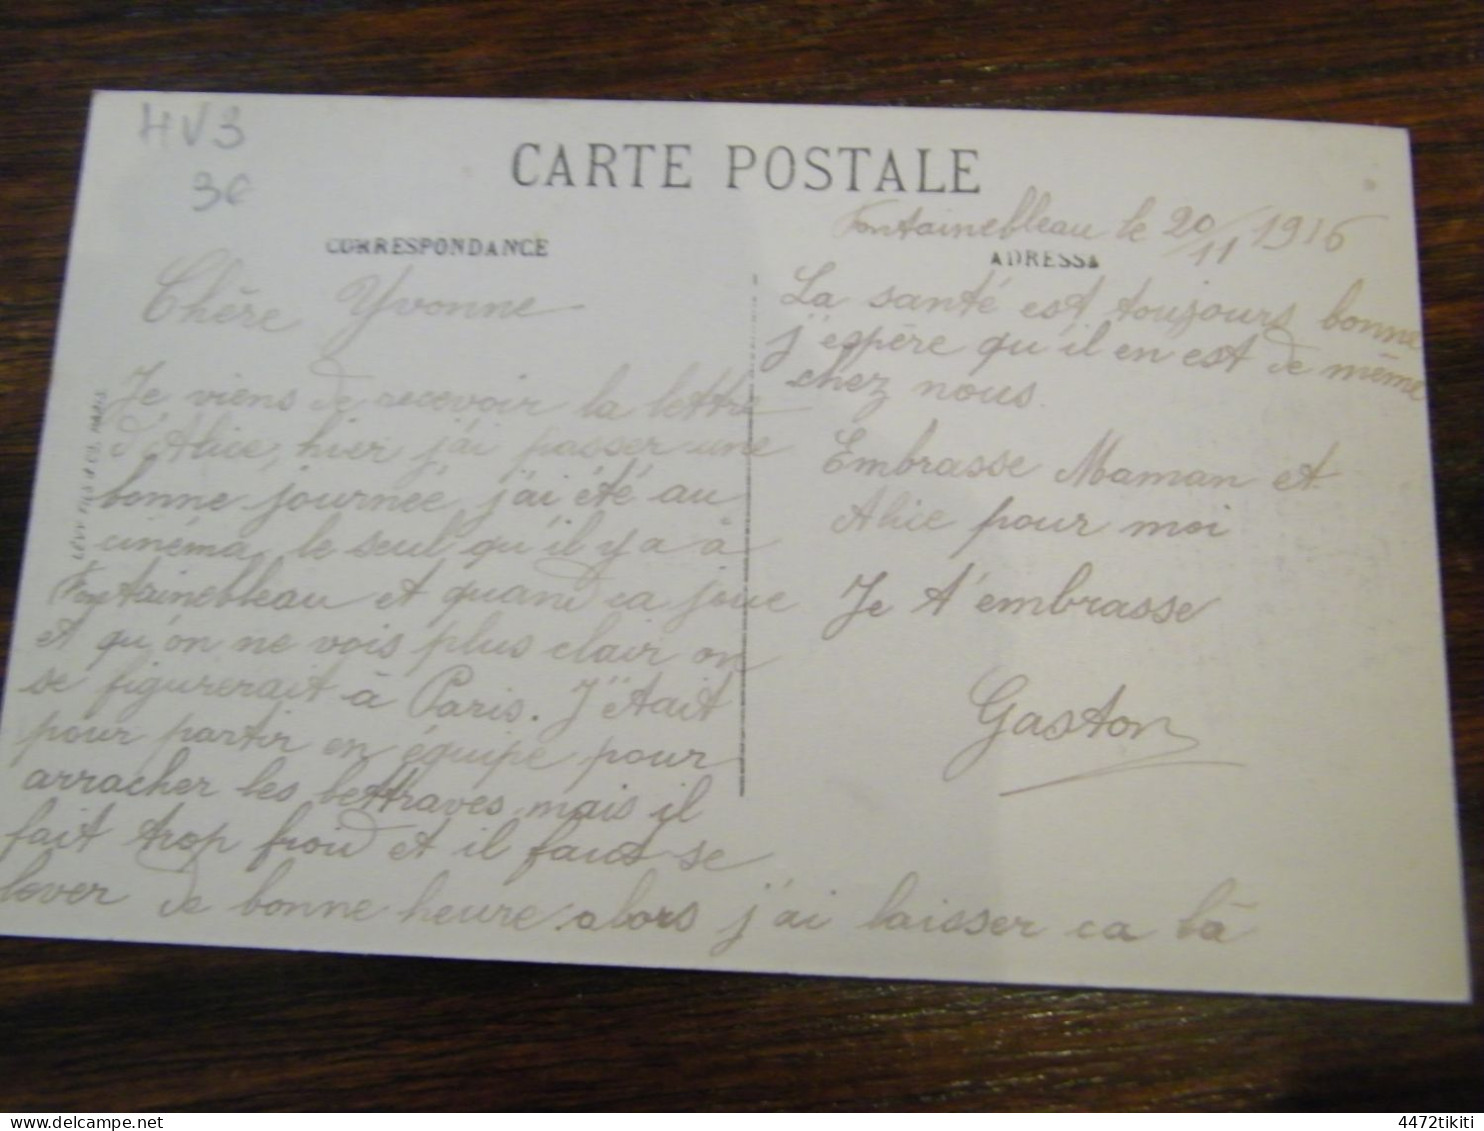 HV3
3€
CARTE POSTALE
CORRESPONDANCE
Chère Yvonne
Je viens de recevoir la lettre
d'Alice, hier j'ai passer une
bonne journée, j'ai été au
cinéma, le seul qu'il y a à
Fontainebleau et quand ca joue
et qu'on ne vois plus clair on
se figurerait à Paris. J'était
pour partir en équipe pour
arracher les bettraves, mais il
fait trop froid et il faut se
lever de bonne heure alors j'ai laisser ca là
LÉVY FILS & Cie, PARIS
Fontainebleau le 20/11 1916
ADRESSE
La santé est toujours bonne
j'espère qu'il en est de même
chez nous.
Embrasse Maman et
Alice pour moi
Je t'embrasse
Gaston
4472tikiti